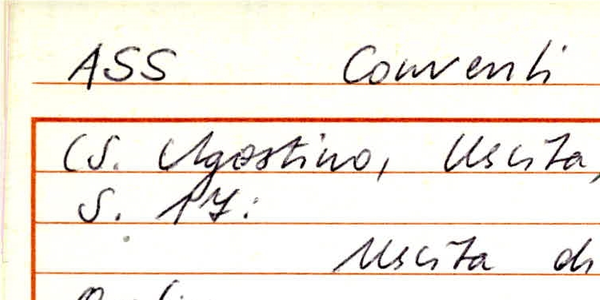 ASS Conventi
(S. Agostino, Uscita,
S. 17:
Uscita di